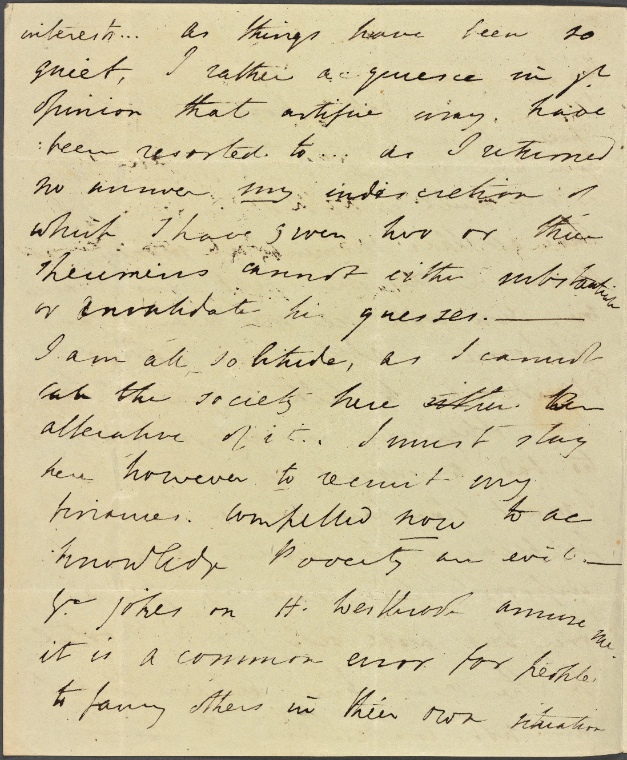 interests... as things have been so
quiet, I rather acquiesce in yr
opinion that artifice may have
been resorted to... as I returned
no answer my indiscretion of
which I have given two or three
specimens cannot either substantiate
or invalidate his guesses.——
I am all solitude, as I cannot
call the society here either an
alterative of it.. I must stay
here however to recruit my
finances. compelled now to ac
knowledge Poverty an evil.—
Yr jokes on H. Westbrook amuse me.
it is a common error for people
to fancy others in their own situation